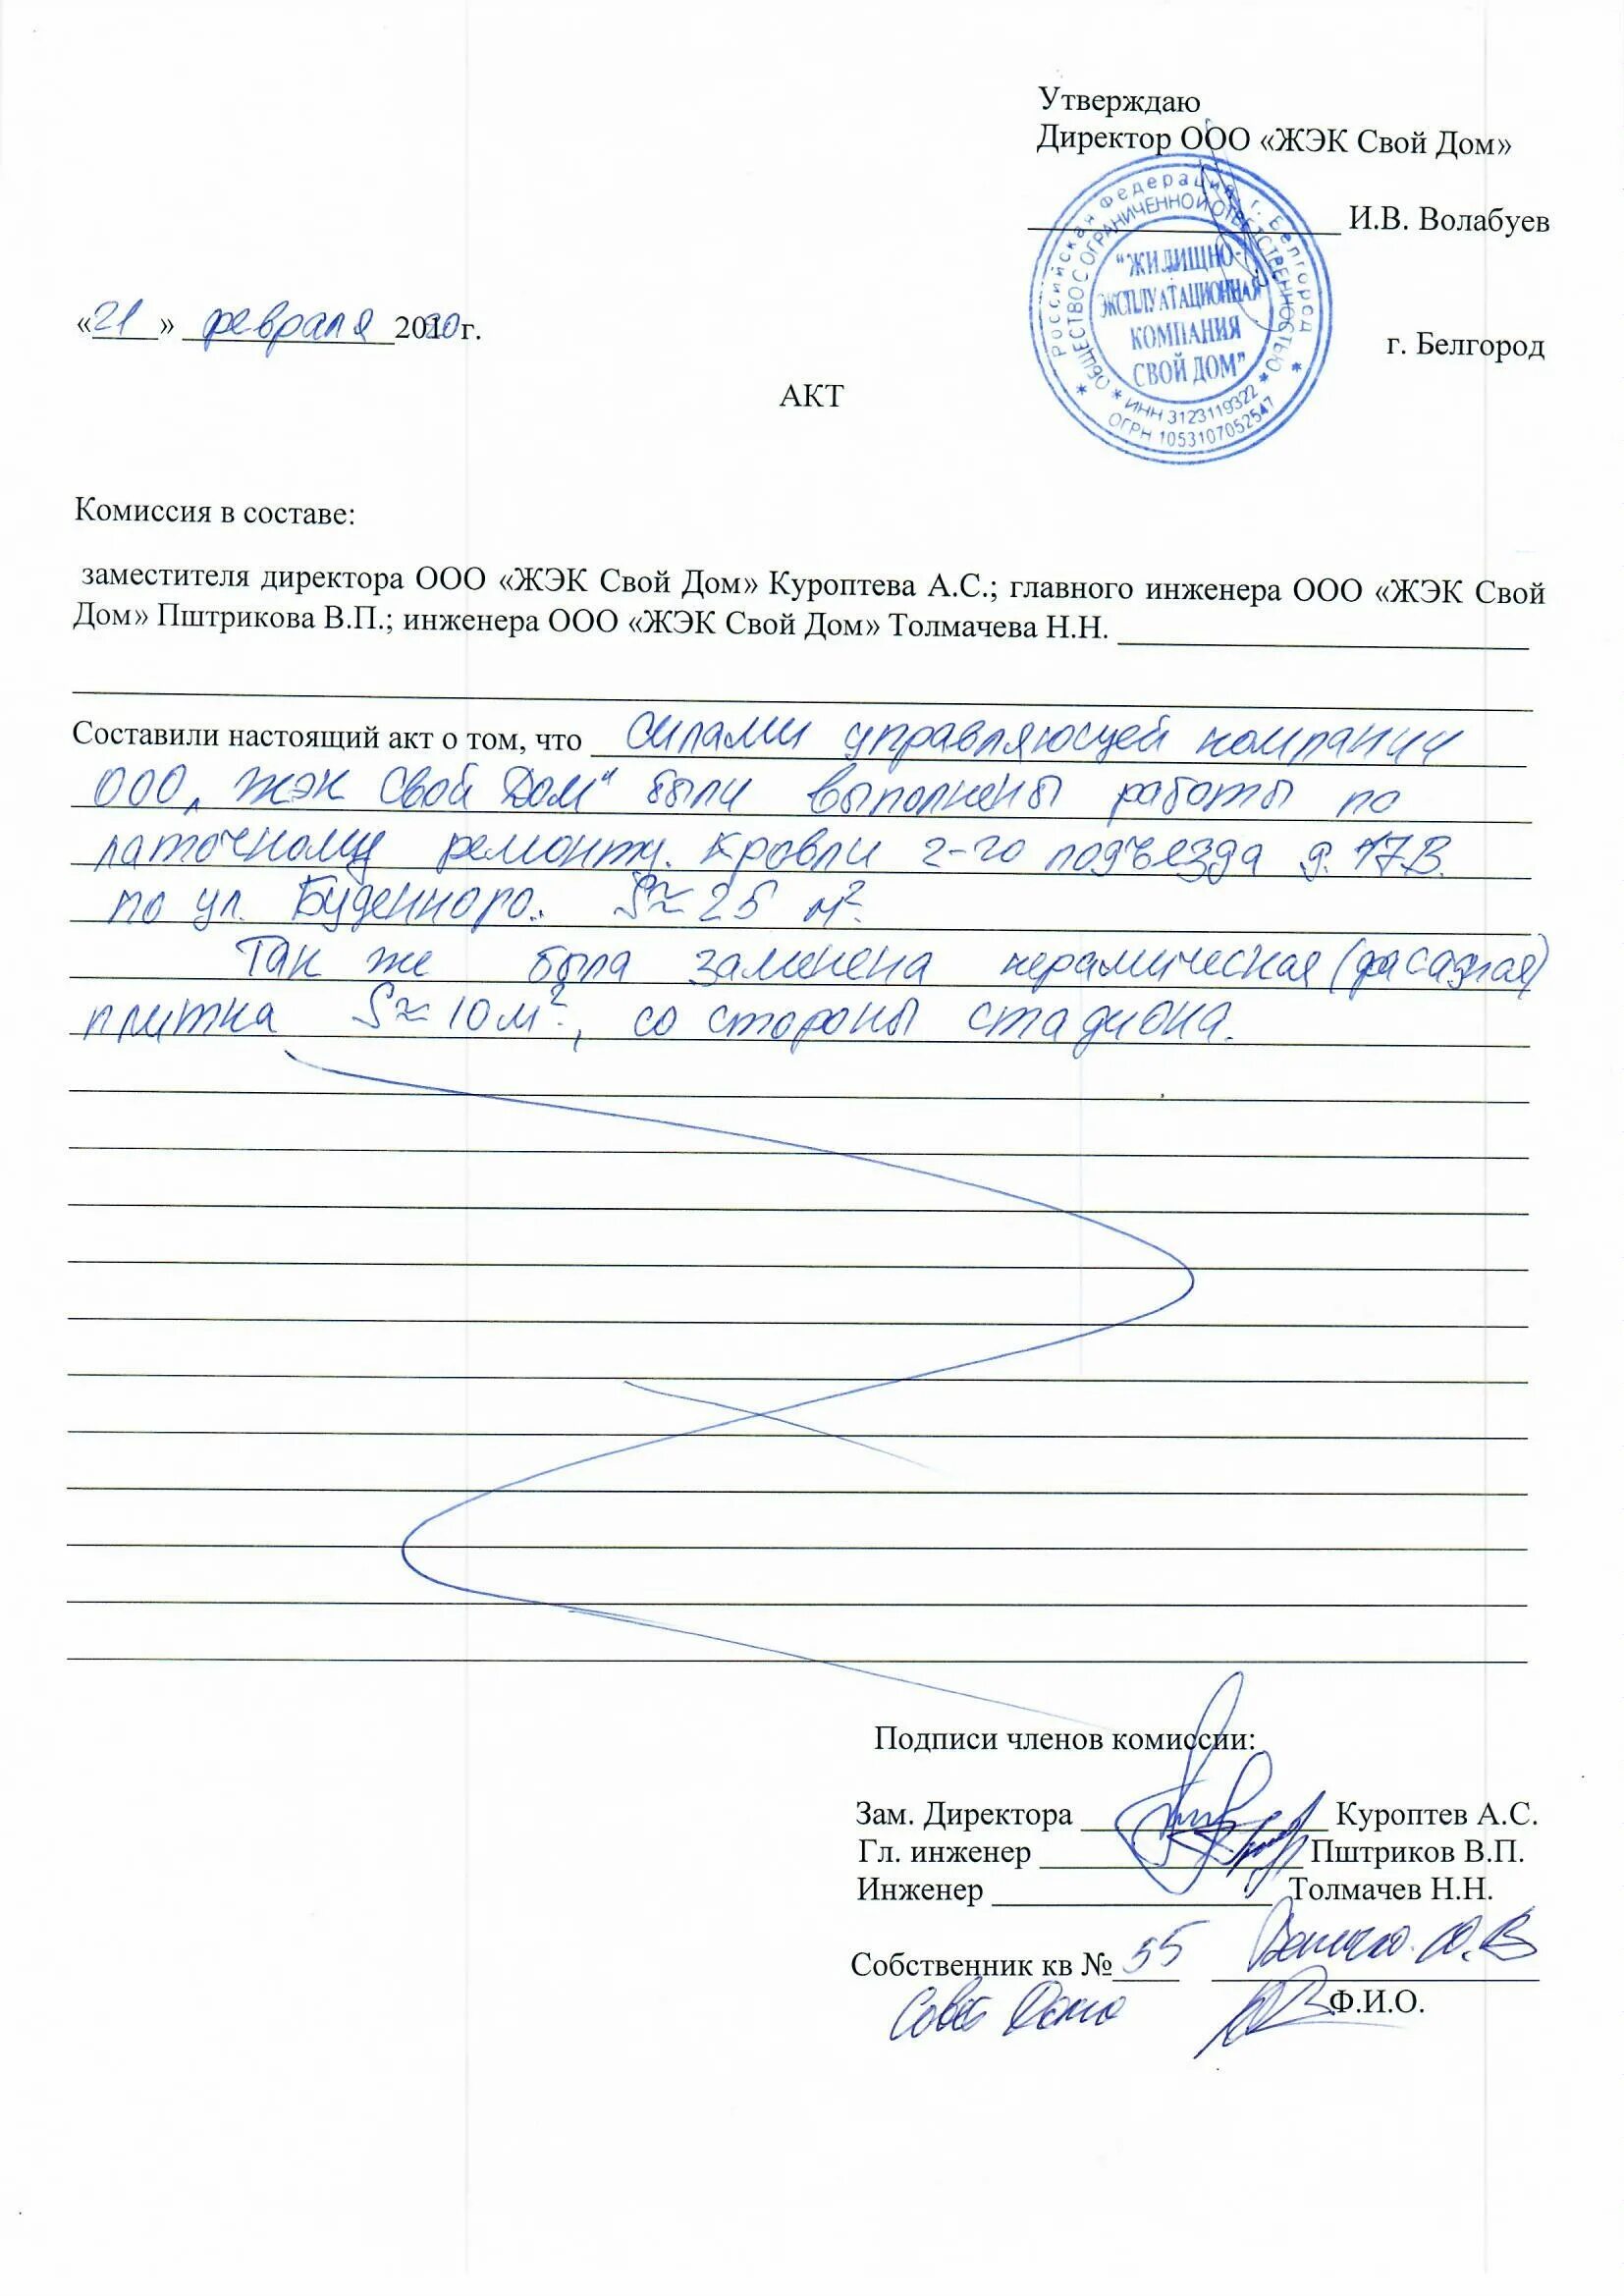 Утверждаю
Директор ООО «ЖЭК Свой Дом»
И.В. Волабуев
Российская Федерация, г. Белгород
ОБЩЕСТВО С ОГРАНИЧЕННОЙ ОТВЕТСТВЕННОСТЬЮ
"ЖИЛИЩНО-
ЭКСПЛУАТАЦИОННАЯ
КОМПАНИЯ
СВОЙ ДОМ"
ИНН 3123119322
ОГРН 1053107052547
«21» февраля 2020 г.
г. Белгород
АКТ
Комиссия в составе:
заместителя директора ООО «ЖЭК Свой Дом» Куроптева А.С.; главного инженера ООО «ЖЭК Свой
Дом» Пштрикова В.П.; инженера ООО «ЖЭК Свой Дом» Толмачева Н.Н.
Составили настоящий акт о том, что силами управляющей компании
ООО „ЖЭК Свой Дом" были выполнены работы по
латочному ремонту кровли 2-го подъезда д. 17В.
по ул. Буденного. S≈25 м².
Так же была заменена керамическая (фасадная)
плитка S≈10м², со стороны стадиона.
Подписи членов комиссии:
Зам. Директора Куроптев А.С.
Гл. инженер Пштриков В.П.
Инженер Толмачев Н.Н.
Собственник кв № 55 Ю.В
Ф.И.О.
Совет Дома